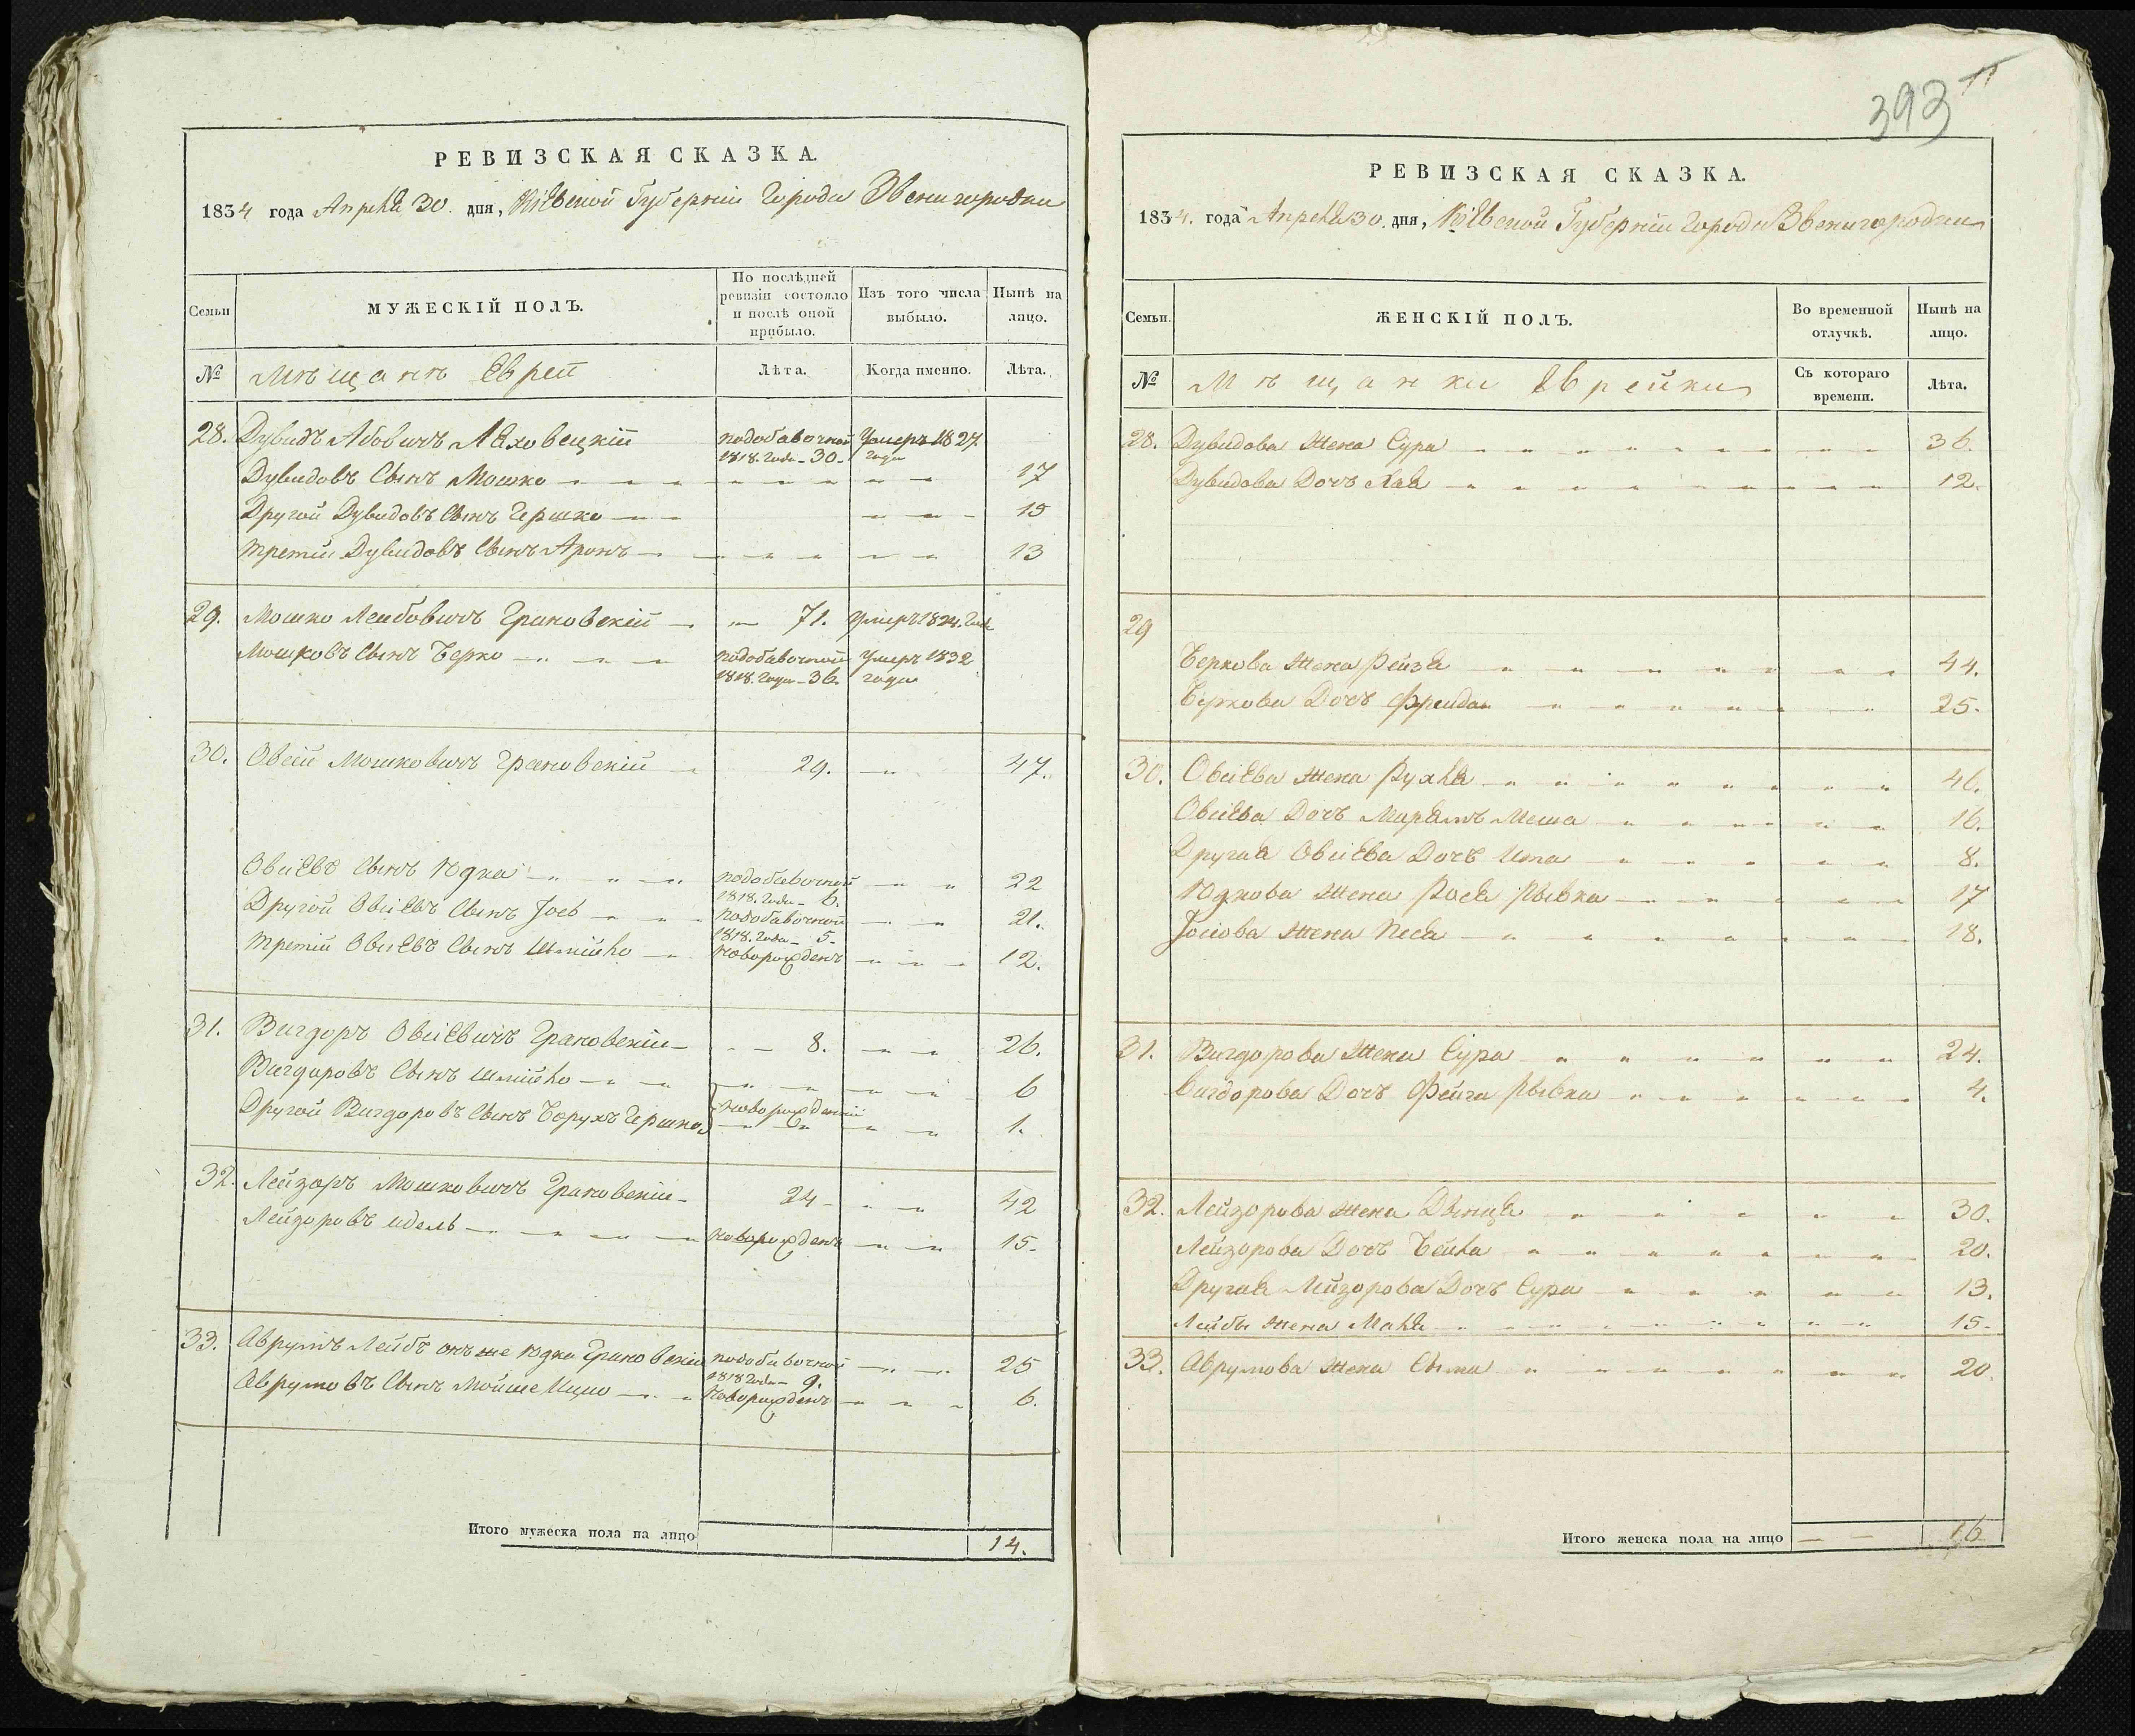 РЕВИЗСКАЯ СКАЗКА.
1834 года Апреля 30. дня, Кіевской Губерніи Города Звенигородки
Семьи
МУЖЕСКІЙ ПОЛЪ.
По послѣдней ревизіи состояло и послѣ оной прибыло.
Изъ того числа выбыло.
Нынѣ на лицо.
№ Мѣщанъ Еврей
Лѣта. Когда именно. Лѣта.
28. Дувидъ Абовичъ Ляховецкій подобавочной 1818. года - 30 - Умеръ 1827 года
Дувидовъ Сынъ Мошко 17
Другой Дувидовъ Сынъ Гершко 15
третій Дувидовъ Сынъ Аронъ 13
29. Мошко Лейбовичъ Грановскій 71. Умеръ 1824. года
Мошковъ Сынъ Берко подобавочной 1818. года - 36. Умеръ 1832 года
30. Овсій Мошковичъ Грановскій 29. 47.
Овсіевъ Сынъ Юдка подобавочной 1818. года - 6. 22
Другой Овсіевъ Сынъ Іось подобавочной 1818. года - 5 - 21.
третій Овсіевъ Сынъ Шмійло новорожденъ 12.
31. Вигдоръ Овсіевичъ Грановскій 8. 26.
Вигдоровъ Сынъ Шмійло 6
новорожденніи
Другой Вигдоровъ Сынъ Борухъ Гершко 1.
32. Лейзоръ Мошковичъ Грановскій 24 - 42
Лейзоровъ Идель новорожденъ 15.
33. Аврумъ Лейбъ онъ же Юдка Грановскій подобавочной 1818 года - 9. 25
Аврумовъ Сынъ Мойше Ицко новорожденъ 6.
Итого мужеска пола на лицо 14.
393
РЕВИЗСКАЯ СКАЗКА.
1834. года Апреля 30. дня, Кіевской Губерніи Города Звенигородки
Семьи.
ЖЕНСКІЙ ПОЛЪ.
Во временной отлучкѣ.
Нынѣ на лицо.
№ Мѣщанки Еврейки
Съ котораго времени. Лѣта.
28. Дувидова Жена Сура 36.
Дувидова Дочь Хая 12.
29
Беркова Жена Рейзя 44.
Беркова Дочь Фрейда 25.
30. Овсіева Жена Рухля 46.
Овсіева Дочь Мирямъ Меша 16.
Другая Овсіева Дочь Ита 8.
Юдкова Жена Рося Рывка 17
Іосіова Жена Песя 18.
31. Вигдорова Жена Сура 24.
Вигдорова Дочь Фейга Рывка 4.
32. Лейзорова Жена Двинця 30.
Лейзорова Дочь Бейла 20.
Другая Лейзорова Дочь Сура 13.
Лейбы Жена Маля 15.
33. Аврумова Жена Сыма 20.
Итого женска пола на лицо 16